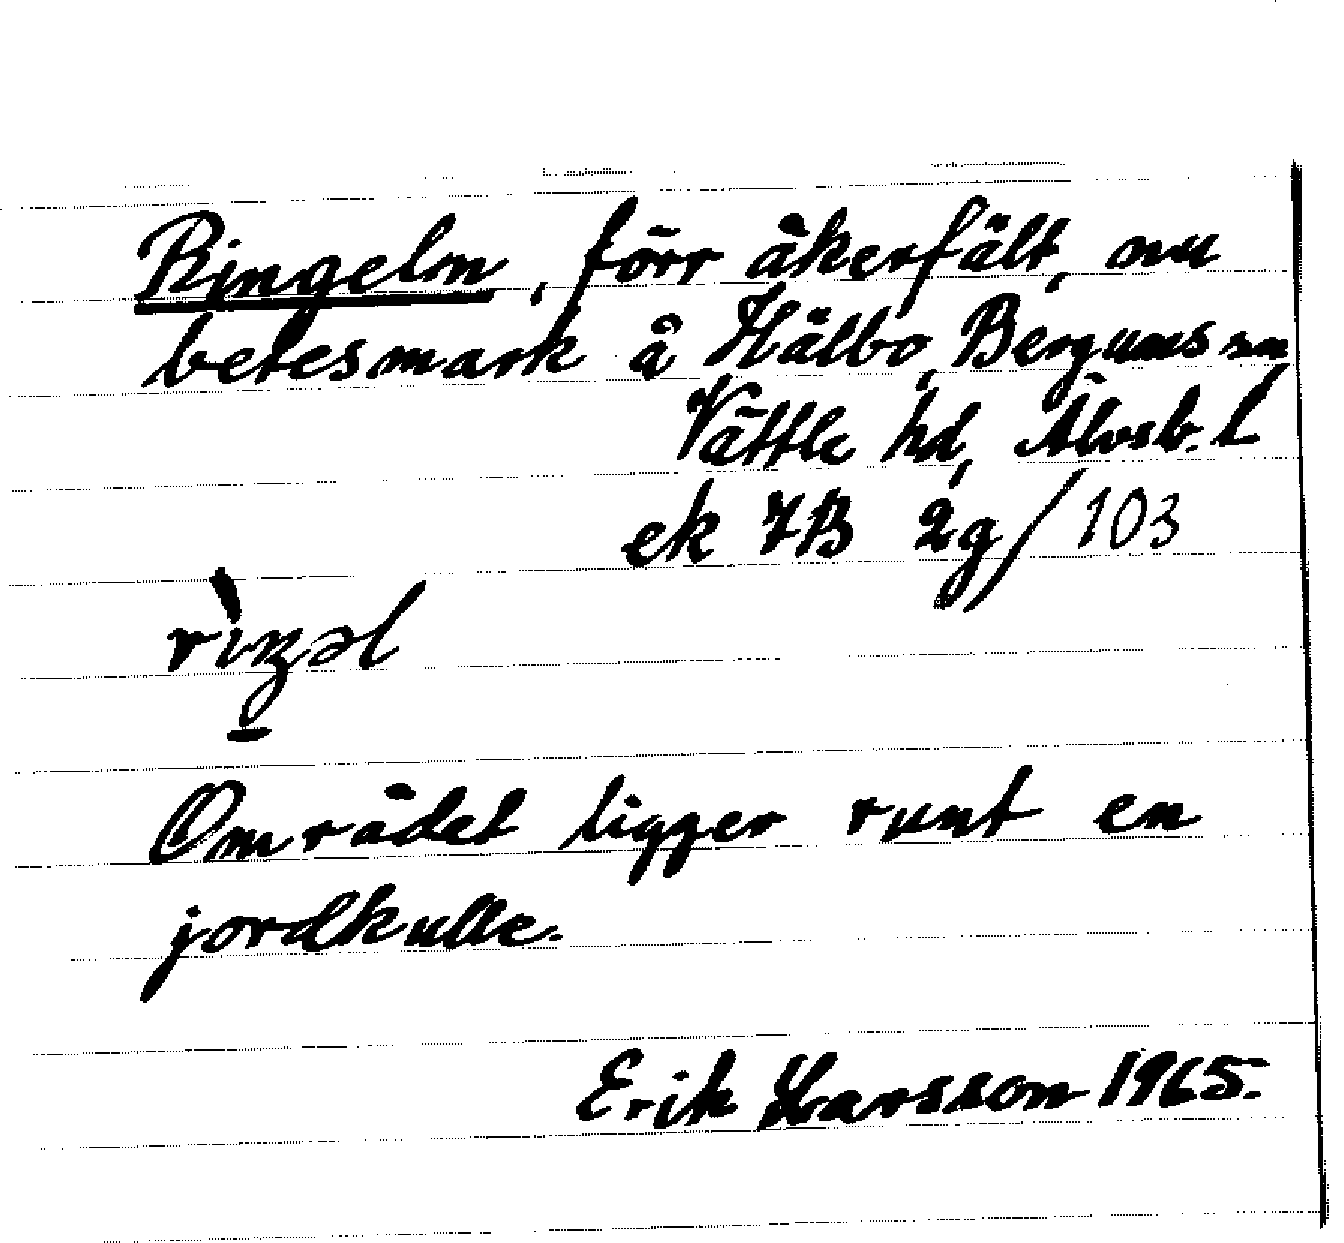 Ringeln, förr åkerfält, nu
betesmark å Hälbo, Bergums sn
Vättle hd, Älvsb. l
ek 7B 2g/103
Området ligger runt en
jordkulle.
Erik Larsson 1965.